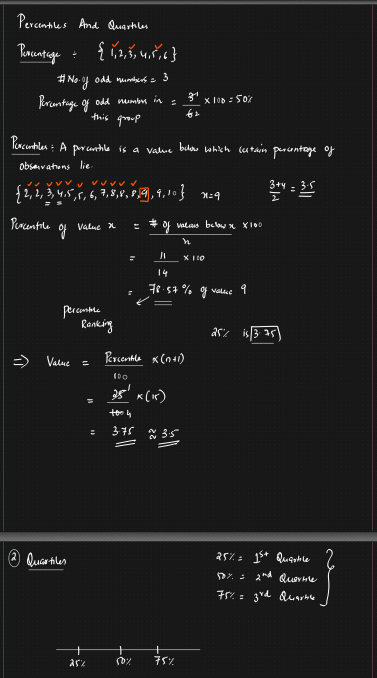 Percentiles And Quartiles
Percentage : { 1, 2, 3, 4, 5, 6 }
# No. of odd numbers = 3
Percentage of odd number in this group = 3/6 x 100 = 50%
Percentiles : A percentile is a value below which certain percentage of
observations lie.
{ 2, 2, 3, 4, 5, 5, 6, 7, 8, 8, 8, 9, 9, 10 } x = 9
3+4/2 = 3.5
Percentile of value x = # of values below x x 100 / n
= 11/14 x 100
= 78.57 % of value 9
percentile
Ranking
25% is 3.75
⇒ Value = Percentile/100 x (n+1)
= 25/100 x (15)
= 3.75 ≈ 3.5
② Quartiles
25% = 1st Quartile
50% = 2nd Quartile
75% = 3rd Quartile
25% 50% 75%